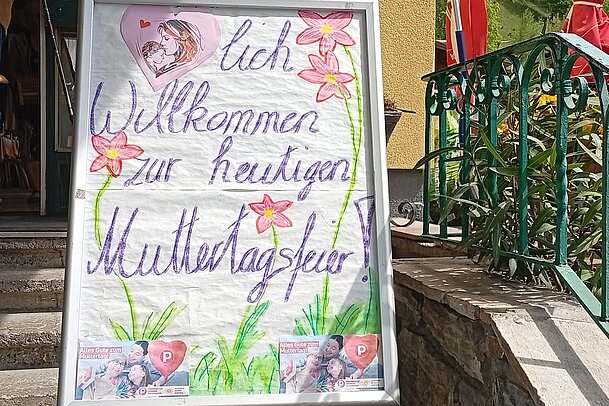 lich
Willkommen
zur heutigen
Muttertagsfeier!
Alles Gute zum
Muttertag!
P
Alles Gute zum
Muttertag!
P